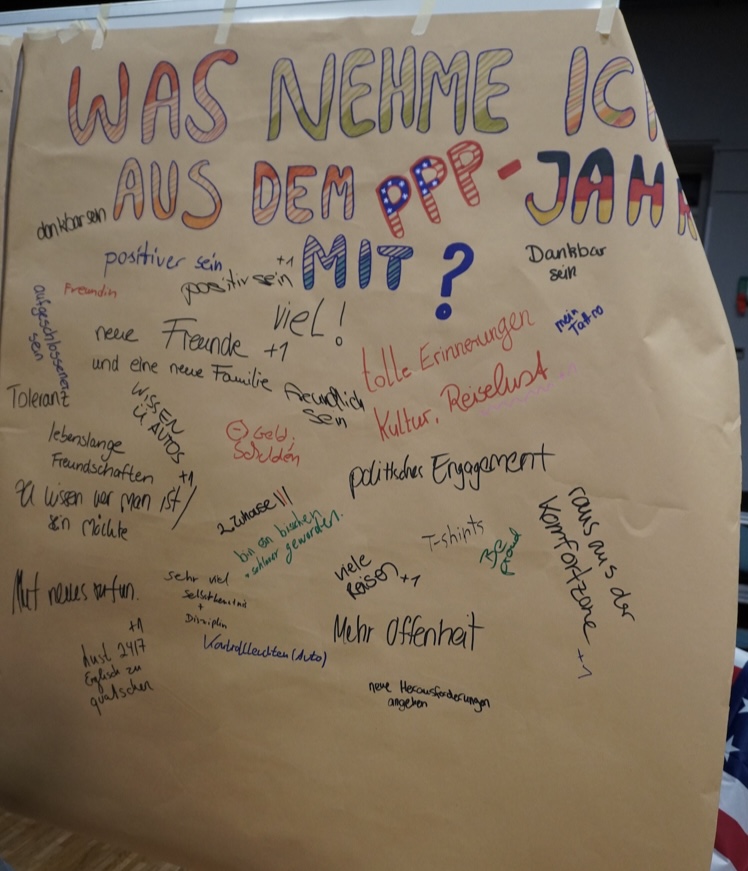 WAS NEHME ICH
AUS DEM PPP-JAHR
MIT ?
dankbar sein
positiver sein
positiv sein +1
Dankbar
sein
Freundin
aufgeschlossener
sein
viel!
mein
Tattoo
neue Freunde +1
und eine neue Familie
tolle Erinnerungen
Freundlich
sein
Kultur, Reiselust
Toleranz
WISSEN
Ü AUTOS
Geld,
Schulden
lebenslange
Freundschaften +1
politisches Engagement
zu wissen wer man ist/
sein möchte
2. Zuhause!!!
bin ein bisschen
geworden.
T-shirts
Be
proud
raus aus der
Komfortzone +1
viele
Reisen +1
Mut neues zu tun.
sehr viel
+
Disziplin
Mehr Offenheit
Kontrollleuchten (Auto)
+1
Lust 24/7
Englisch zu
quatschen
neue Herausforderungen
angehen